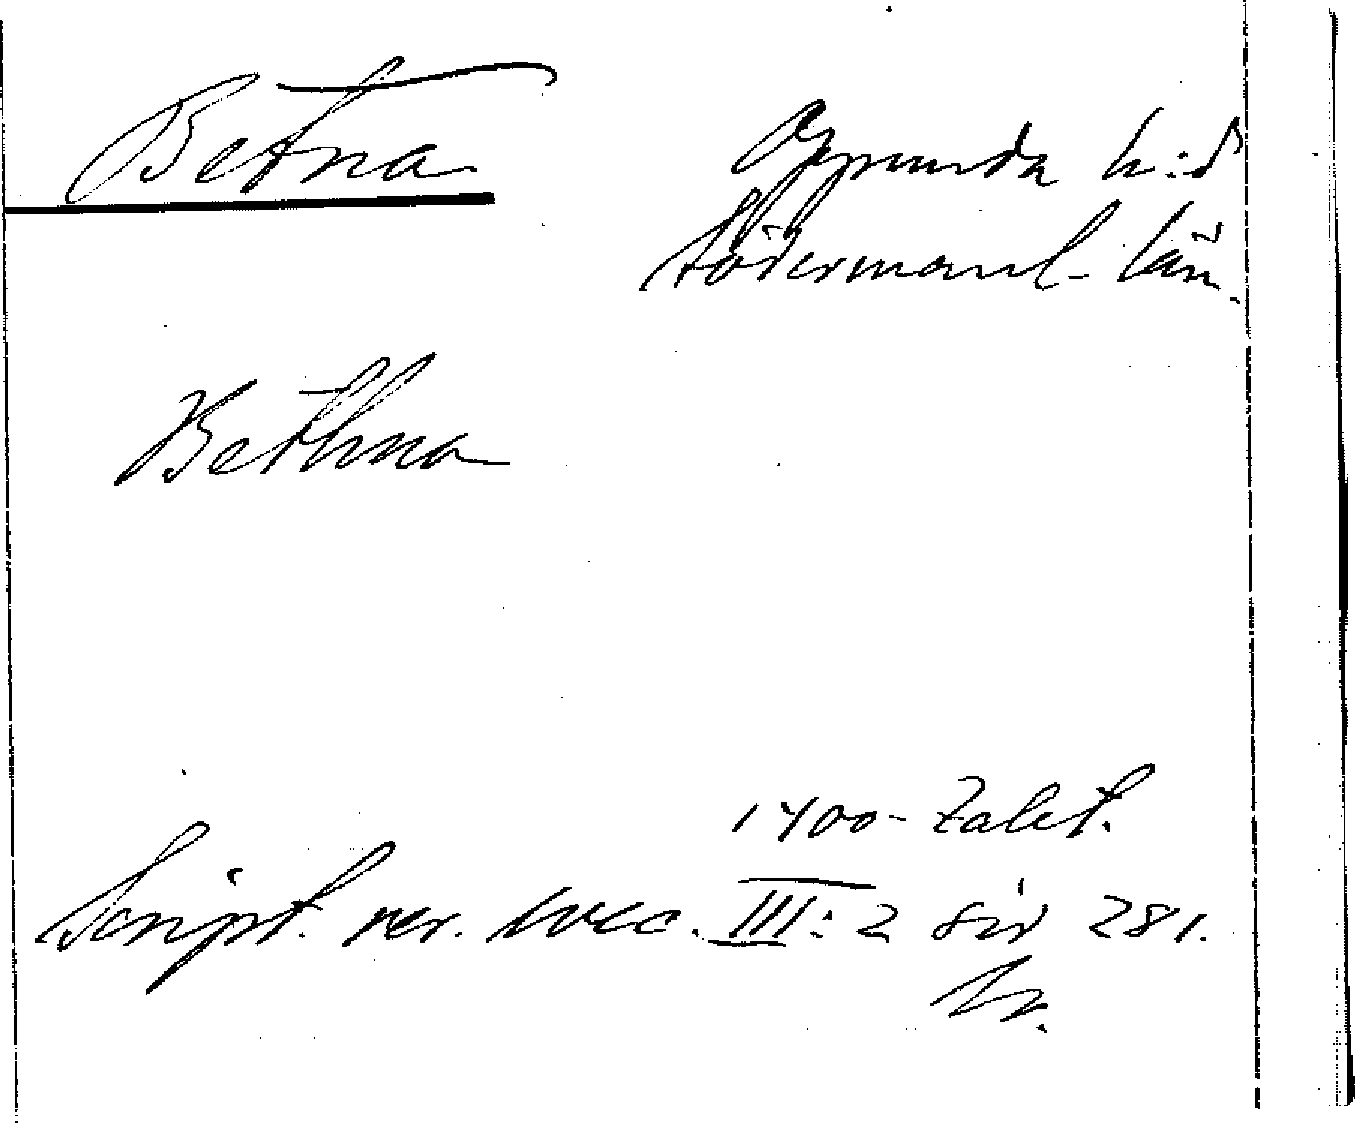 Betna
Oppunda h:d
Södermanl. län.
Bethna
1400-talet.
Script. rer. svec. III: 2 sid 281.